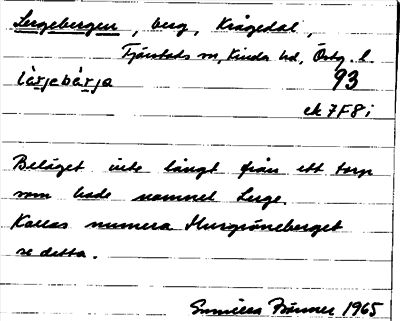 Lergebergen, berg, Krågedal,
Tjärstads sn, Kinda hd, Östg. l.
lärjebärja 93
ek 7F8i
Beläget inte långt från ett torp
som hade namnet Lerge.
Kallas numera Murgröneberget
se detta.
Gunilla 1965